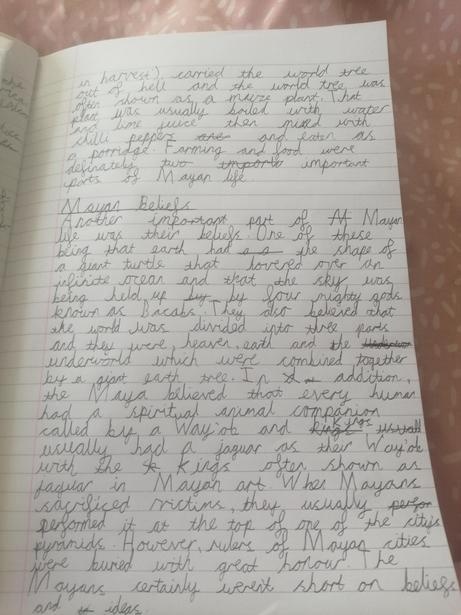 in harvest), carried the world tree
out of hell and the world tree was
often shown as a maize plant. That
plant was usually boiled with water
and lime juice then mixed with
chilli peppers are and eaten as
a porridge. Farming and food were
definately two importa important
parts of Mayan life.
Mayan Beliefs
Another important part of Mayan
life was their beliefs. One of these
being that earth had the shape of
a giant turtle that hovered over an
infinite ocean and that the sky was
being held up by by four mighty gods
known as Bacabs. They also believed that
the world was divided into three parts
and they were, heaven, earth and the
underworld which were combined together
by a giant earth tree. In addition,
the Maya believed that every human
had a spiritual animal companion
called by a Way'ob and kings usuall
usually had a jaguar as their Way'ob
with the Kings often shown as
jaguar in Mayan art. When Mayans
sacrificed victims, they usually perfor
performed it at the top of one of the citys
pyramids. However, rulers of Mayan cities
were buried with great honour. The
Mayans certainly werent short on beliefs
and ideas.